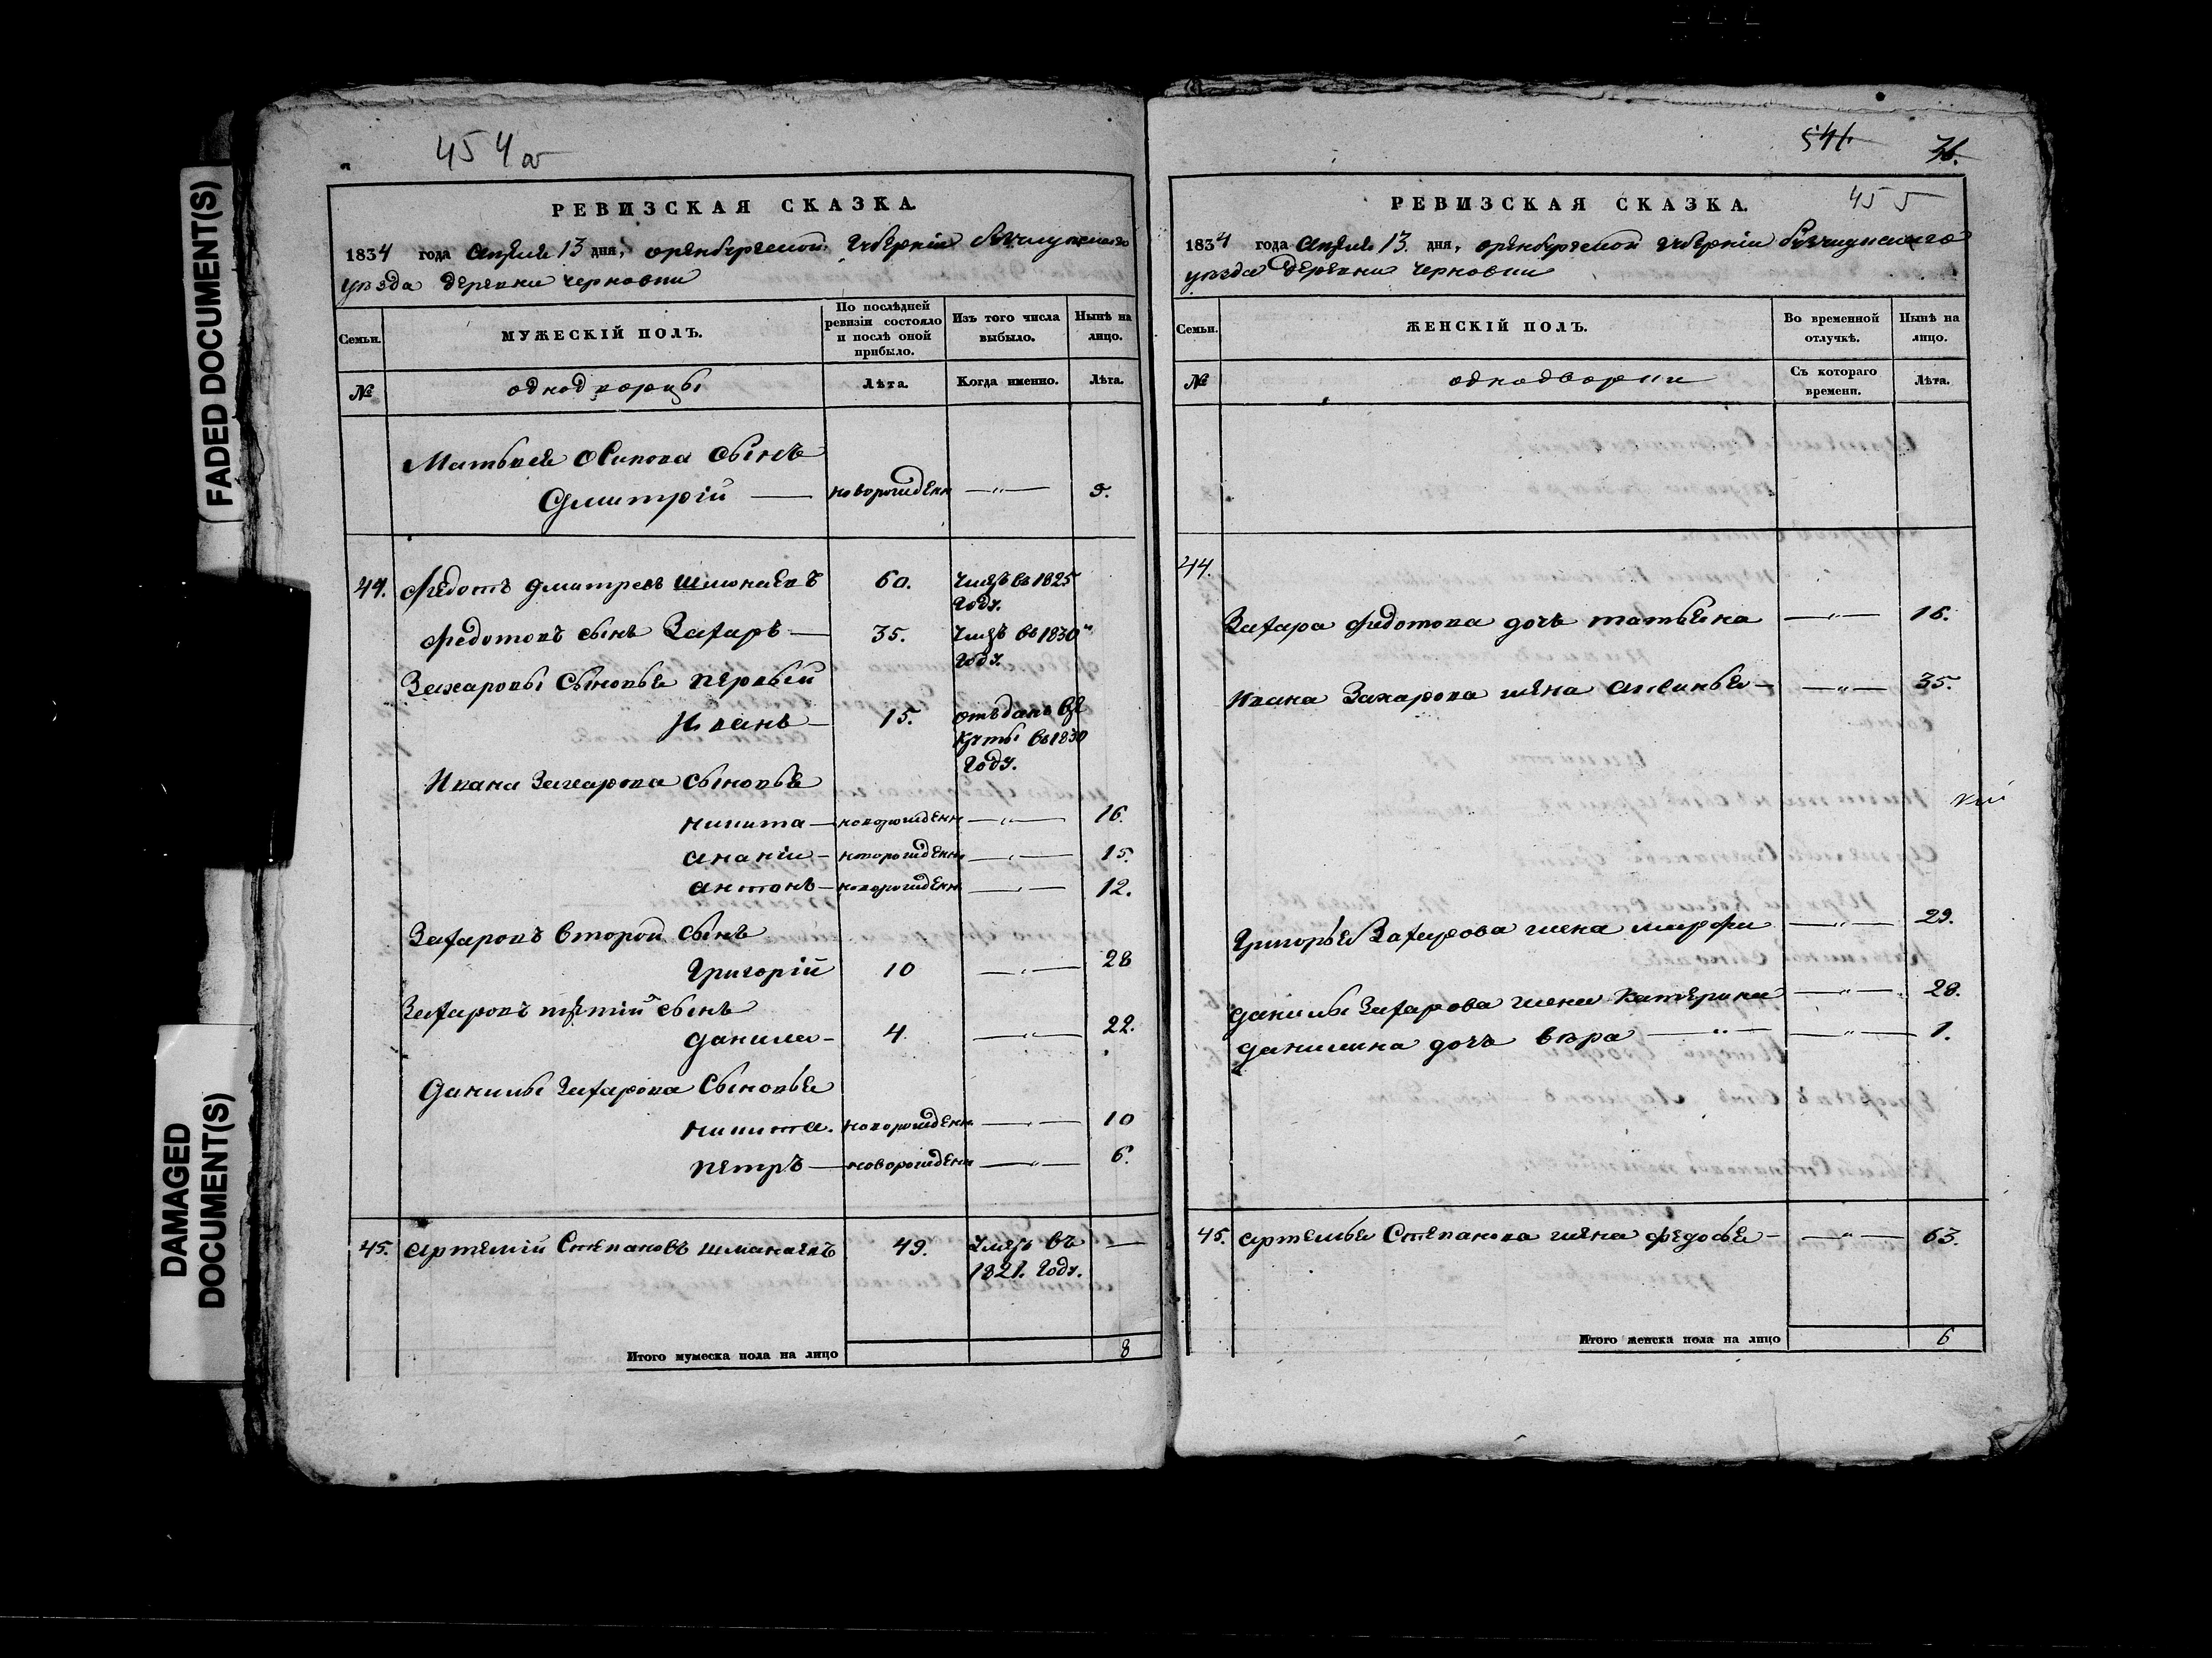 FADED DOCUMENT(S)
DAMAGED
DOCUMENT(S)
454 об
РЕВИЗСКАЯ СКАЗКА.
1834 года апреля 13 дня, оренбургской губерніи бузулукскаго
уезда деревни черновки
Семьи.
МУЖЕСКІЙ ПОЛЪ.
По послѣдней
ревизіи состояло
и послѣ оной
прибыло.
Изъ того числа
выбыло.
Нынѣ на
лицо.
№
однодворцы
Лѣта.
Когда именно.
Лѣта.
Матвея Осипова сынъ
Дмитрій — новорожденн — " — 5.
44. Федотъ дмитревъ 60. Умеръ въ 1825
году.
Федотовъ сынъ Захаръ — 35. Умеръ въ 1830
году.
Захаровы сыновья первый
Иванъ — 15. отъданъ въ
въ 1830
году.
Ивана Захарова сыновья
никита — новорожденн — " — 16.
ананій — новорожденн — " — 15.
антонъ — новорожденн — " — 12.
Захаровъ второй сынъ
Григорій 10 — " — 28
Захаровъ третій сынъ
данила — 4 — " — 22.
Данилы Захарова сыновья
никита. новорожденн — " — 10
петръ — новорожденн — " — 6.
45. артемій Степановъ шманаевъ 49. умеръ въ —
1821. году.
Итого мужеска пола на лицо 8
541.
76.
455
РЕВИЗСКАЯ СКАЗКА.
1834 года апреля 13. дня, оренбургской губерніи бузулукскаго
уезда деревни черновки
Семьи.
ЖЕНСКІЙ ПОЛЪ.
Во временной
отлучкѣ.
Нынѣ на
лицо.
№
однодворки
Съ котораго
времени.
Лѣта.
44.
Захара Федотова дочь татьяна — " — 16.
Ивана Захарова жена аксинья — — " — 35.
Григорья Захарова жена марфа — " — 29.
данилы Захарова жена катерина — " — 28.
данилина дочь вера — " — — " — 1.
45. артемья Степанова жена федосья — — " — 63.
Итого женска пола на лицо 6